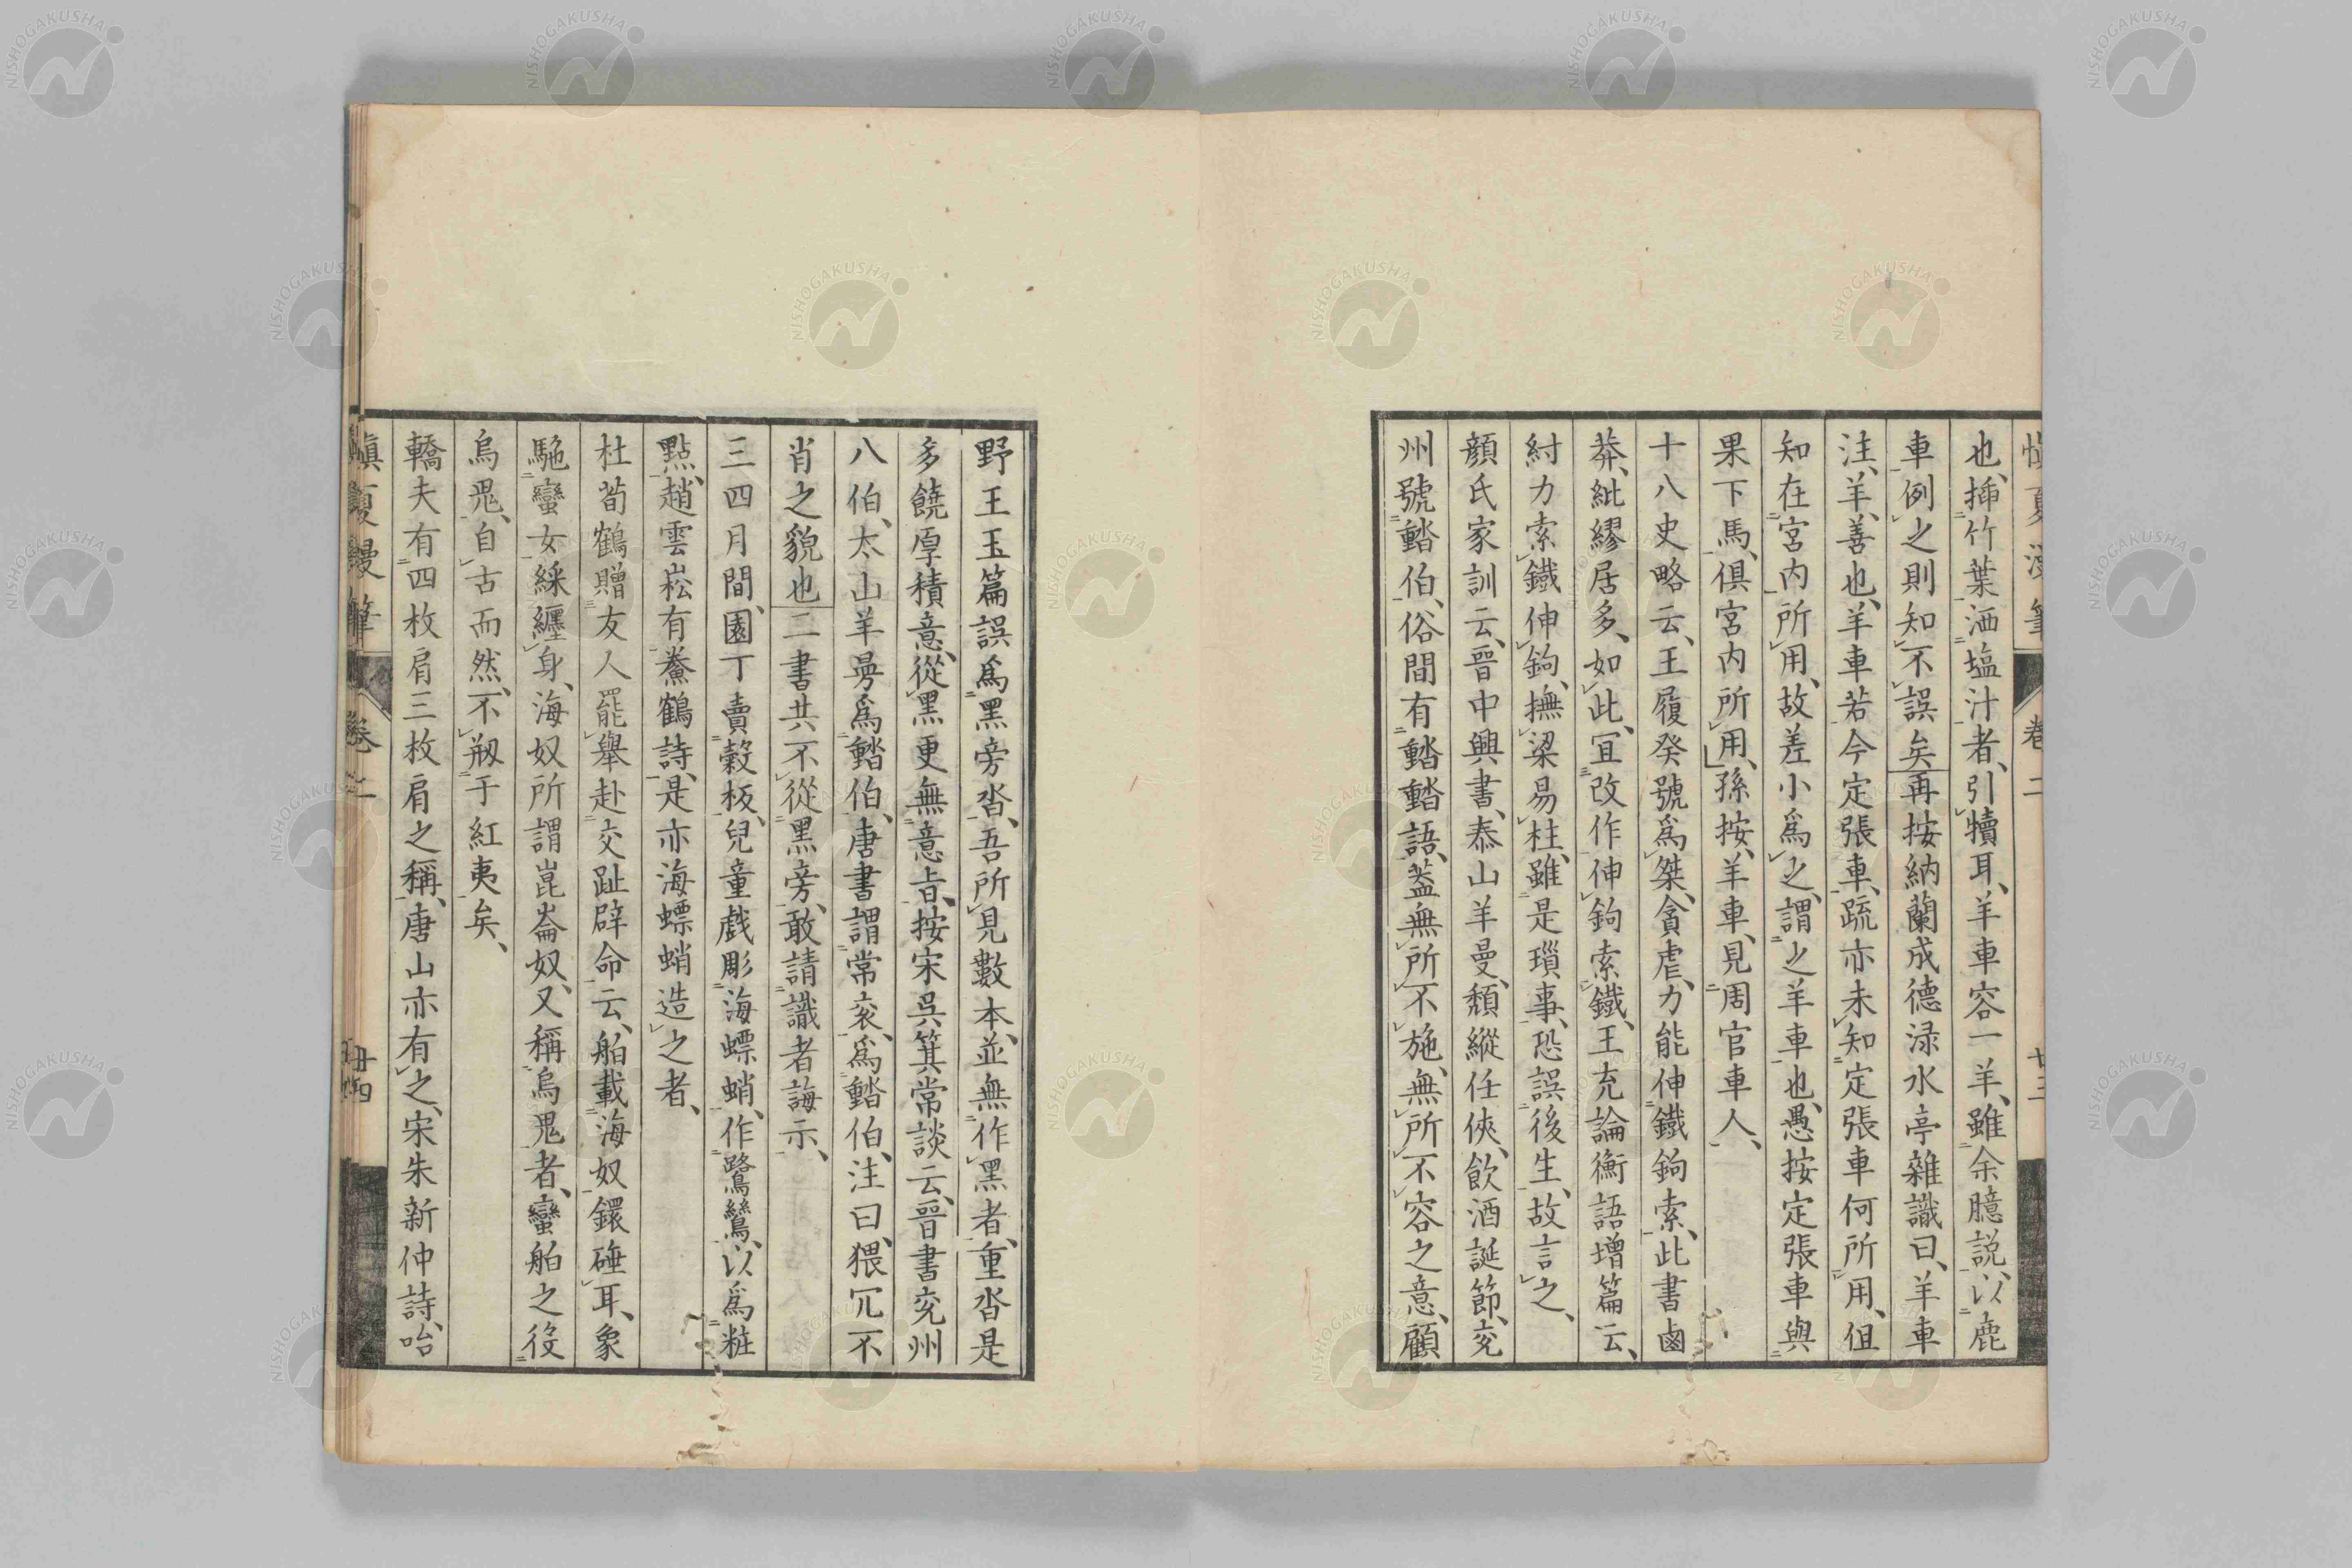 慎夏漫筆 卷二 廿三
也、挿竹葉洒塩汁者、引犢耳、羊車容一羊、雖余臆説、以鹿
車例之則知不誤矣再按納蘭成德渌水亭雜識曰、羊車
注、羊、善也、羊車若今定張車、疏亦未知定張車何所用、但
知在宮内所用、故差小爲之、謂之羊車也、愚按定張車與
果下馬、俱宮内所用、孫按、羊車、見周官車人、
十八史略云、王履癸號爲桀、貪虐、力能伸鐵鉤索、此書鹵
莽、紕繆居多、如此、宜改作伸鉤索鐵、王充論衡語增篇云、
紂力索鐵伸鉤、撫梁易柱、雖是瑣事、恐誤後生、故言之、
顔氏家訓云、晉中興書、泰山羊曼、頽縱任俠、飲酒誕節、兗
州號䵬伯、俗間有䵬䵬語、蓋無所不施、無所不容之意、顧
野王玉篇誤爲黑旁沓、吾所見數本、並無作黑者、重沓是
多饒厚積意、從黑更無意旨、按宋吳箕常談云、晉書兗州
八伯、太山羊曼爲䵬伯、唐書謂常袞、爲䵬伯、注曰、猥冗不
肖之貌也二書共不從黑旁、敢請識者誨示、
三四月間、園丁賣穀板、兒童戯彫海螵蛸、作鷺鷥、以爲粧
點、趙雲崧有鮝鶴詩、是亦海螵蛸造之者、
杜荀鶴贈友人罷舉赴交趾辟命云、舶載海奴鐶硾耳、象
駞蠻女綵纏身、海奴所謂崑崙奴、又稱烏鬼者、蠻舶之役
烏鬼、自古而然、不剏于紅夷矣、
轎夫有四枚肩三枚肩之稱、唐山亦有之、宋朱新仲詩、咍
慎夏漫筆 卷二
NISHOGAKUSHA